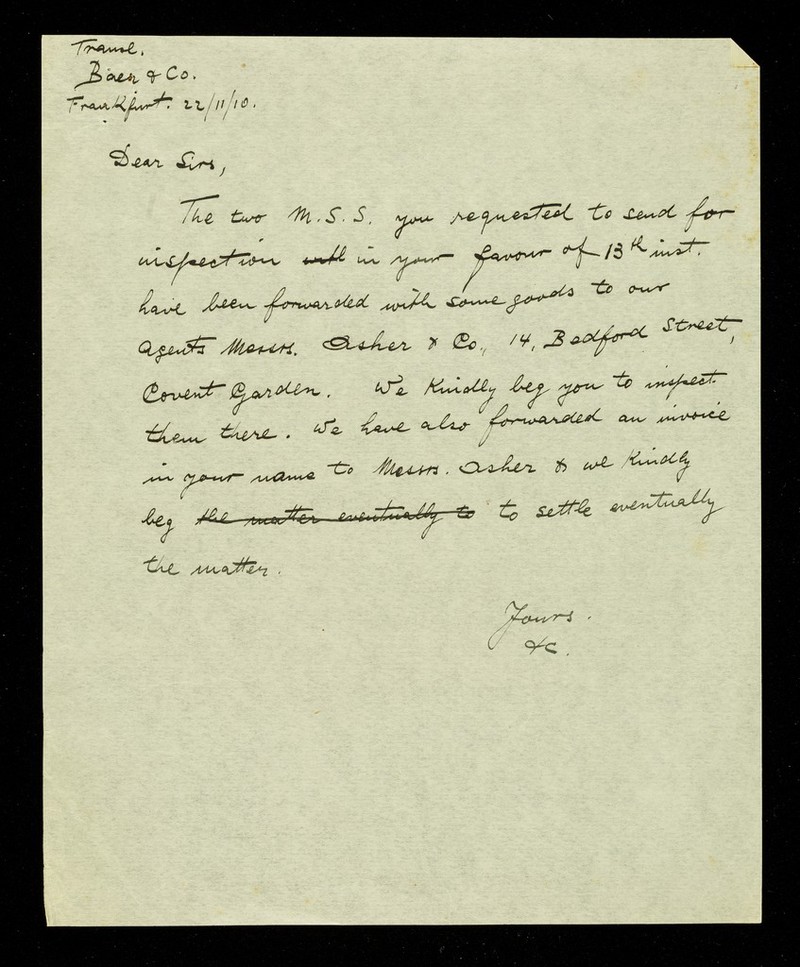 Transl.
Baer & Co.
Frankfurt. 22/11/10.
Dear Sirs,
The two M.S.S. you requested to send for
inspection will in your favour of 13th inst.
have been forwarded with some goods to our
agents Messrs. Asher & Co., 14, Bedford Street,
Covent Garden. We kindly beg you to inspect
them there. We have also forwarded an invoice
in your name to Messrs. Asher & we kindly
beg the matter eventually to to settle eventually
the matter.
Yours.
&c.